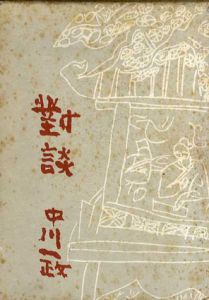 對談 中川一政